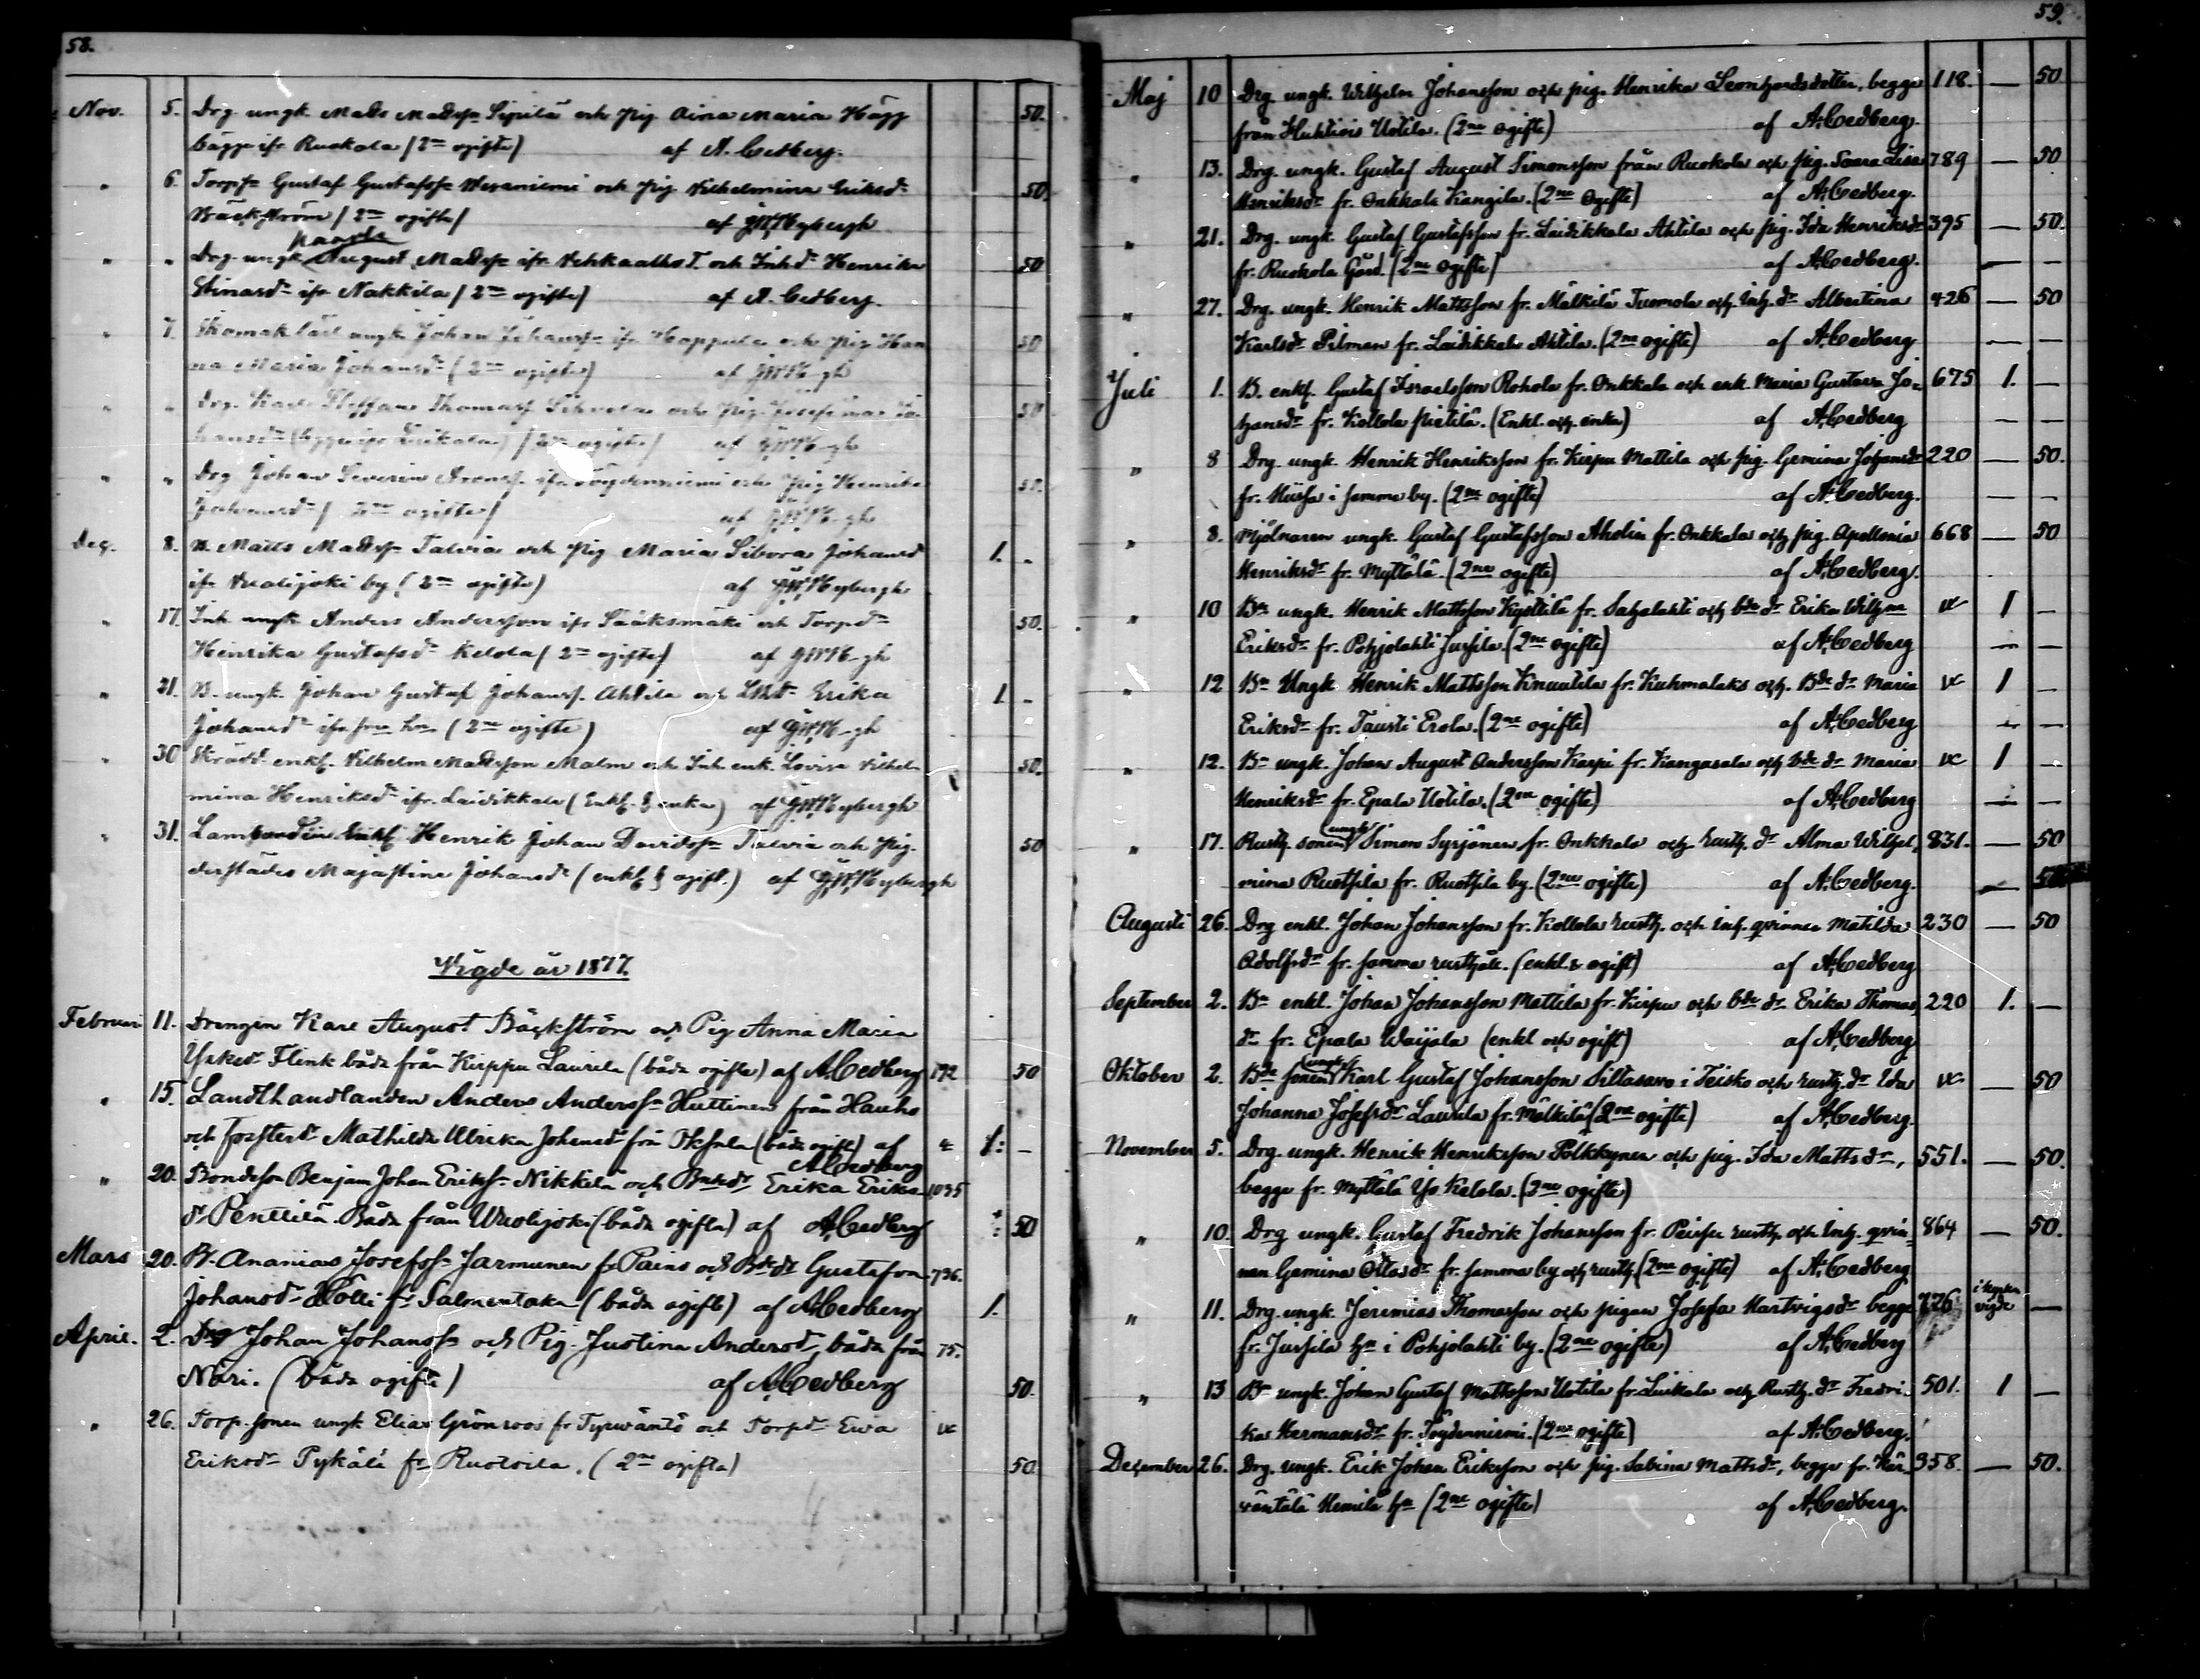 58.
Nov. 5. Drg ungk. Matts Madss. Sipilä och Pig Aina Maria Hägg 50.
bägge ifr Ruokola (2ne ogifte) af A. Cedberg.
" 6. Torps. Gustaf Gustafss. Vesaniemi och Pig Vilhelmina Eriksdr 50.
Bäckström (2ne ogifte) af Nybergh
" " Drg ungk August Madss. ifr och Inhdr Henrika 50
Stinasdr ifr Nakkila (2ne ogifte) af A. Cedberg.
" 7. ungk Johan Johanss. ifr Happula och Pig Han 50
na Maria Johansdr (2ne ogifte) af gh
" " Drg. Karl Steffan Thomass. och Pig. Josefina Jo 50
hansdr (2ne ogifte) af gh
" " Drg Johan Severin ifr Töydenniemi och Pig Henrika 50.
Johansdr (2ne ogifte) af gh
Dec. 8. B. Matts Madss. Talvia och Pig Maria Sibora Johansd 1. -
ifr Uvalijoki by (2ne ogifte) af Nybergh
" 17. Inh ungk Anders Andersson ifr Sääksmäki och Torpdr 50.
Henrika Gustafsdr Kelola (2ne ogifte) af gh
" 21. B. ungk. Johan Gustaf Johanss. Ahtila och Erika 1. -
Johansdr ifr (2ne ogifte) af gh
" 30 Skrädd. enkl. Vilhelm Madsson Malm och Inh. enk. Lovisa Vilhel- 50.
mina Henriksdr ifr. Laidikkala (Enkl. & enka) af Nybergh
" 31. Enkl Henrik Johan Davidss. Talvia och Pig. 50
derstädes Majastina Johansdr (enkl. & ogift.) af Nybergh
Vigde år 1877.
Februari 11. Drengen Karl August Bäckström och Pig Anna Maria
Flink båda från Kirppu Laurila (båda ogifte) af A. Cedberg 192 50
" 15. Landthandlanden Anders Anderss. Huttinen från Hauho
och Mathilda Ulrika Johansdr från (båda ogift) af 4 1: -
A. Cedberg
" 20. Bondeson Benjam Johan Erikss. Nikkilä och Erika Eriks 1035
dr Penttilä Båda från Uvalijoki (båda ogifta) af A. Cedberg 50
Mars 20. B. Ananias Josefss. Jarmunen fr Paino och Bdedr Gustafva 796.
Johansdr Kölli fr Salmentaka (båda ogifte) af A. Cedberg 1.
April. 2. Drg Johan Johanss. och Pig. Justina Andersdr, båda från 75.
Näri. (båda ogifte) af A. Cedberg 50.
" 26. Torp. sonen ungk Elias Grönroos fr Tyrväntö och Torpdr Eva vc
Eriksdr Pykälä fr. Ruotsila. (2ne ogifta) 50
59.
Maj 10 Drg. ungk. Wilhelm Johansson och pig. Henrika Leonhardsdotter, begge 118. — 50
från Huhtiois Uotila. (2ne ogifte) af A. Cedberg.
" 13. Drg. ungk. Gustaf August Simonsson från Ruokola och pig. Saara Lisa 789 — 50
Henriksdr fr. Onkkala Kangila. (2ne ogifte) af A. Cedberg.
" 21. Drg. ungk. Gustaf Gustafsson fr. Laidikkala Ahtila och pig. Ida Henriksdr 395 — 50.
fr. Ruokola Gård. (2ne ogifte) af A. Cedberg. — —
" 27. Drg. ungk. Henrik Mattsson fr. Mälkilä Tuomola och inh. dr Albertina 426 — 50
Karlsdr Pilman fr. Laidikkala Ahtila. (2ne ogifte) af A. Cedberg — —
Juli 1. B. enkl. Gustaf Israelsson Rohola fr. Onkkala och enk. Maria Gustava Jo- 675 1. —
hansdr fr. Kollola Pietilä. (Enkl. och enka) af A. Cedberg — —
" 8 Drg. ungk. Henrik Henriksson fr. Kirpu Mattila och pig. Gemina Johansdr 220 — 50.
fr. Hiirsa i samma by. (2ne ogifte) af A. Cedberg. — —
" 8. Mjölnaren ungk. Gustaf Gustafsson Aholin fr. Onkkala och pig. Apollonia 668 — 50
Henriksdr fr. Myttälä. (2ne ogifte) af A. Cedberg.
" 10 Bn ungk. Henrik Mattsson Kysttilä fr. Sahalahti och bde dr Erika Wilhma vc 1 —
Eriksdr fr. Pohjolahti Jussila. (2ne ogifte) af A. Cedberg — —
" 12 Bn Ungk Henrik Mattsson Knuutila fr. Kuhmalaks och. Bde dr Maria vc 1 —
Eriksdr fr. Tausti Erola. (2ne ogifte) af A. Cedberg — —
" 12. Bn ungk. Johan August Andersson Karpi fr. Kangasala och bde dr Maria vc 1 —
Henriksdr fr. Epala Uotila. (2ne ogifte) af A. Cedberg — —
" 17. Rusth. sonen (ungk) Simon Syrjänen fr. Onkkala och rusth. dr Alma Wilhel- 831. — 50
mina Ruotsila fr. Ruotsila by. (2ne ogifte) af A. Cedberg. —
Augusti 26. Drg enkl. Johan Johansson fr. Kollola rusth. och inh. qvinnan Matilda 230 — 50
Adolfsdr fr. samma rusthåll. (enkl. & ogift) af A. Cedberg
September 2. Bn enkl. Johan Johansson Mattila fr. Kirpu och bde dr Erika Thomas 220 1. —
dr fr. Epala Waijala (enkl och ogift) af A. Cedberg
Oktober 2. Bde sonen (ungk) Karl Gustaf Johansson Siltasavo i Teisko och rusth. dr Ida vc — 50
Johanna Josefsdr Laurila fr. Mälkilä (2ne ogifte) af A. Cedberg.
November 5. Drg. ungk. Henrik Henriksson Polkkynen och pig. Ida Matts dr, 551. — 50.
begge fr. Myttälä Yso Kelola. (2ne ogifte)
" 10. Drg ungk. Gustaf Fredrik Johansson fr. Peipu rusth. och inh. qvin- 864 — 50.
nan Gemina Ottosdr fr. samma by och rusth. (2ne ogifte) af A. Cedberg
" 11. Drg. ungk. Jeremias Thomasson och pigan Josefa Hartvigsdr begge 226 i kyrkan vigde —
fr. Jussila hn i Pohjolahti by. (2ne ogifte) af A. Cedberg
" 13 Bn ungk. Johan Gustaf Mattsson Uotila fr. Luikala och Rusth. dr Fredri- 501. 1 —
ka Hermansdr fr. Töydenniemi. (2ne ogifte) af A. Cedberg.
December 26. Drg. ungk. Erik Johan Eriksson och pig. Sabina Mattsdr, begge fr. Här- 358. — 50.
väntälä Hemilä hn (2ne ogifte) af A. Cedberg.